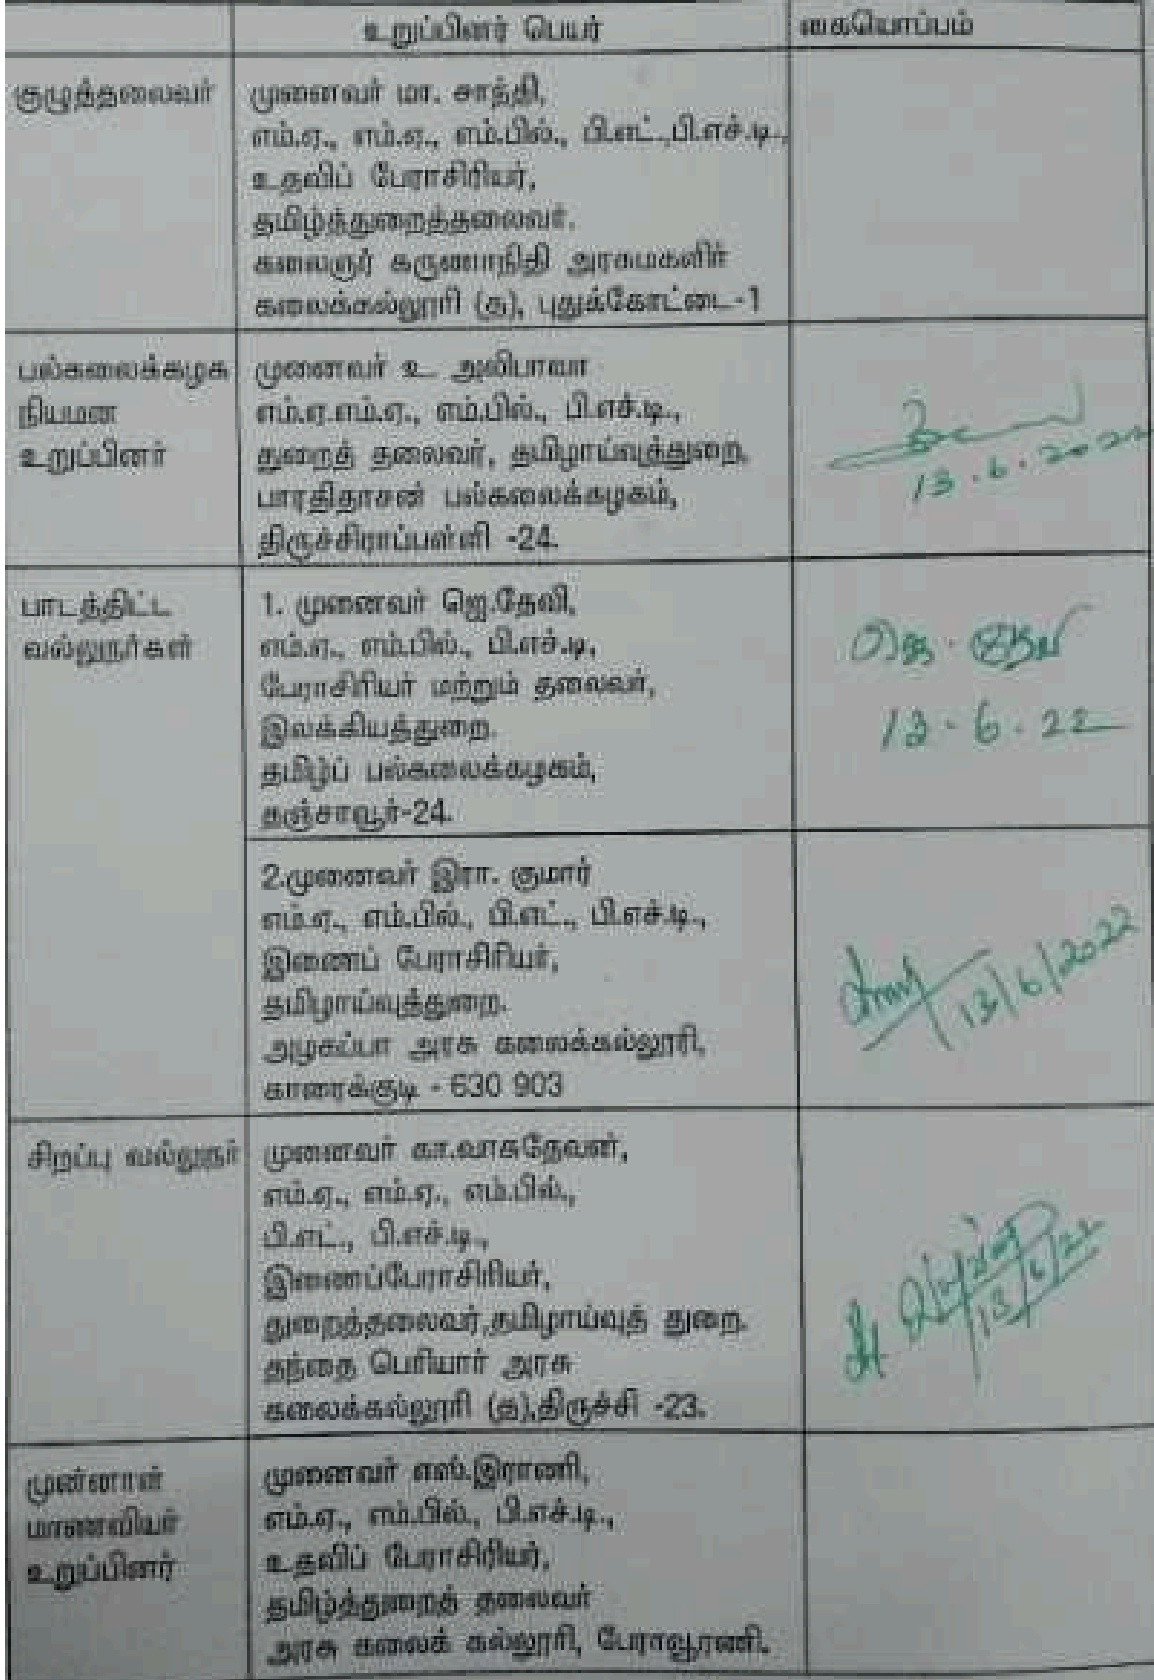 உறுப்பினர் பெயர் கையொப்பம்
குழுத்தலைவர்
முனைவர் மா. சாந்தி,
எம்.ஏ., எம்.ஏ., எம்.பில்., பி.எட்.,பி.எச்.டி.,
உதவிப் பேராசிரியர்,
தமிழ்த்துறைத்தலைவர்.
கலைஞர் கருணாநிதி அரசுமகளிர்
கலைக்கல்லூரி (த), புதுக்கோட்டை-1
பல்கலைக்கழக
நியமன
உறுப்பினர்
முனைவர் உ. அலிபாவா
எம்.ஏ.எம்.ஏ., எம்.பில்., பி.எச்.டி.,
துறைத் தலைவர், தமிழாய்வுத்துறை,
பாரதிதாசன் பல்கலைக்கழகம்,
திருச்சிராப்பள்ளி -24.
13.6.2022
பாடத்திட்ட
வல்லுநர்கள்
1. முனைவர் ஜெ.தேவி,
எம்.ஏ., எம்.பில்., பி.எச்.டி,
பேராசிரியர் மற்றும் தலைவர்,
இலக்கியத்துறை.
தமிழ்ப் பல்கலைக்கழகம்,
தஞ்சாவூர்-24.
ஜெ. தேவி
13-6-22
2.முனைவர் இரா. குமார்
எம்.ஏ., எம்.பில்., பி.எட்., பி.எச்.டி.,
இணைப் பேராசிரியர்,
தமிழாய்வுத்துறை.
அழகப்பா அரசு கலைக்கல்லூரி,
காரைக்குடி - 630 903
13/6/2022
சிறப்பு வல்லுநர்
முனைவர் கா.வாசுதேவன்,
எம்.ஏ., எம்.ஏ., எம்.பில்.,
பி.எட்., பி.எச்.டி.,
இணைப்பேராசிரியர்,
துறைத்தலைவர்,தமிழாய்வுத் துறை.
தந்தை பெரியார் அரசு
கலைக்கல்லூரி (த),திருச்சி -23.
13/6/22
முன்னாள்
மாணவியர்
உறுப்பினர்
முனைவர் எஸ்.இராணி,
எம்.ஏ., எம்.பில்., பி.எச்.டி.,
உதவிப் பேராசிரியர்,
தமிழ்த்துறைத் தலைவர்
அரசு கலைக் கல்லூரி, பேராவூரணி.